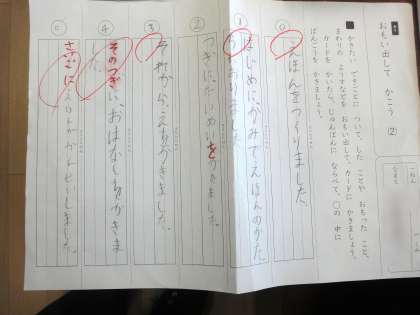 おもい出して かこう ②
かきたい できごとに ついて、した ことや おもった こと、
まわりの ようすなどを おもい出して、カードに かきましょう。
カードを かいたら、じゅんばんに ならべて、○の 中に
ばんごうを かきましょう。
えほんをつくりました。
①
はじめに、かみでえほんのかた
ちをおりました。
②
つぎに、だいめいをかきました。
③
それからえをかきました。
④
そのつぎに、おはなしをかきま
した。
さいごに